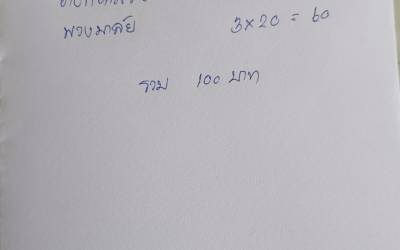 พวงมาลัย 3×20 = 60
รวม 100 บาท